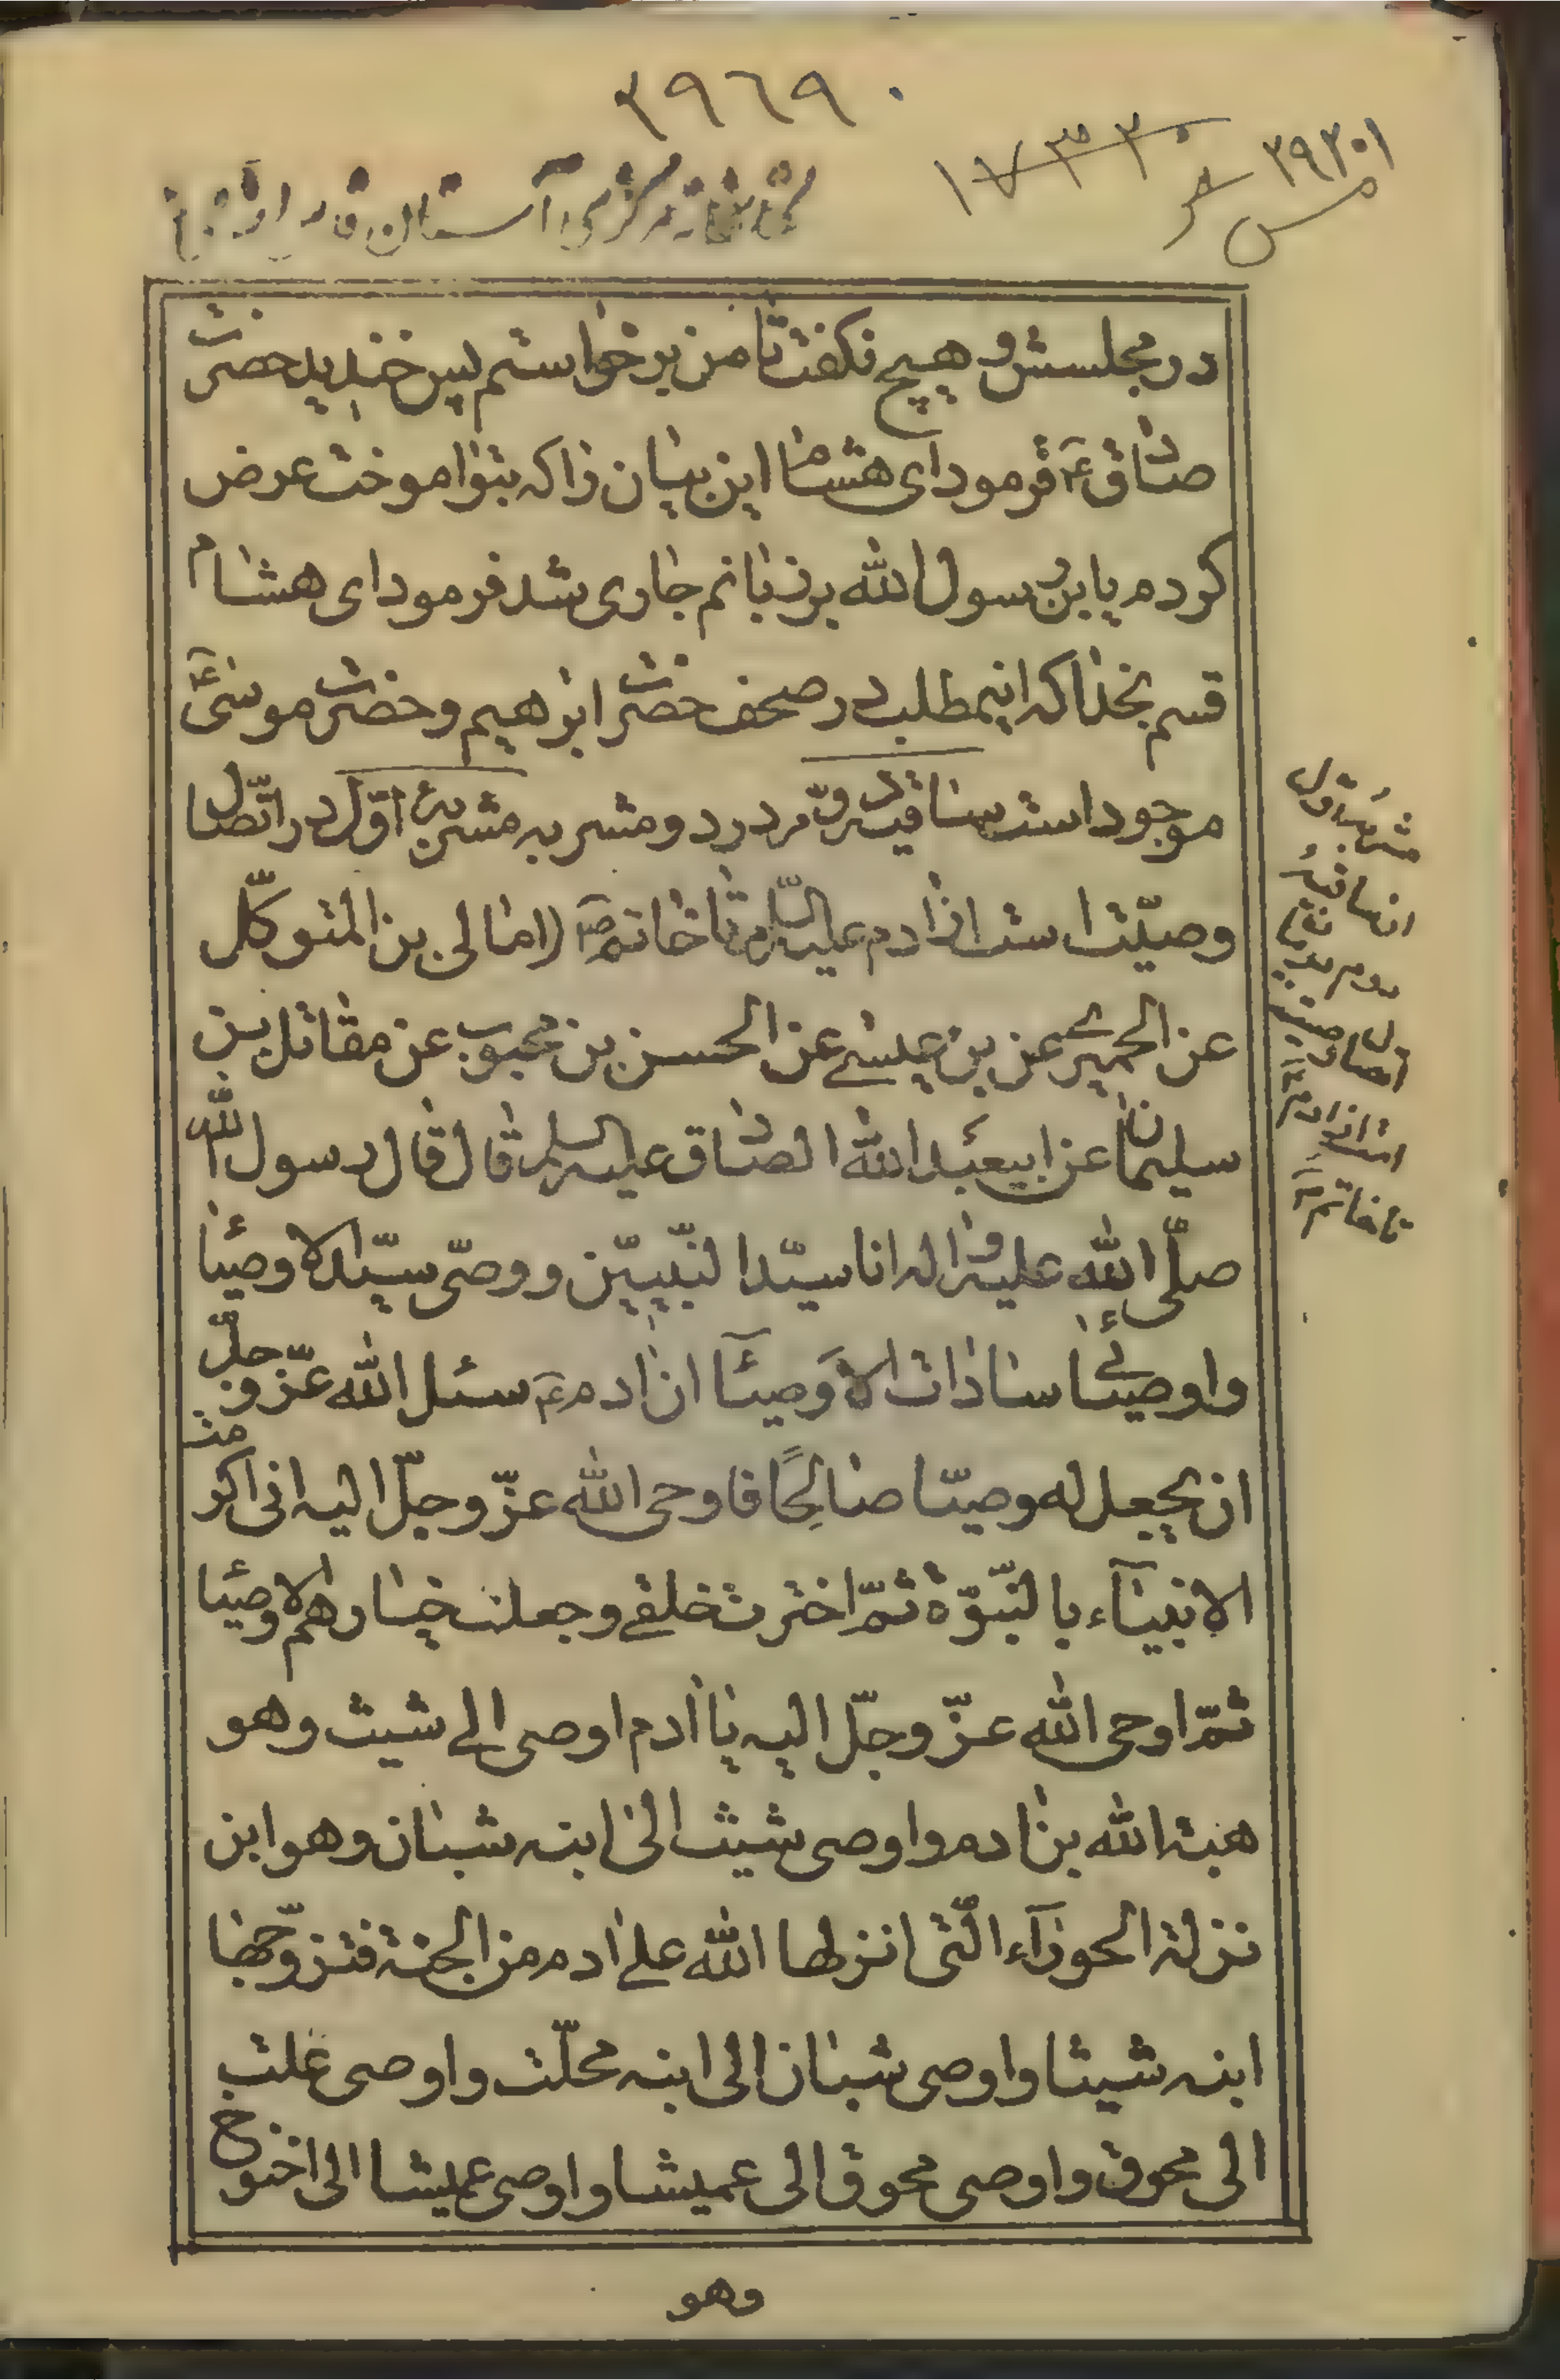 ۳۹۶۹۰
۳۹۳۰۱
۱۷۳۳۰
کتابخانه مرکزی آستان قدس
در مجلسش و هیچ نکفت تا من برخواستم پس خندید حضرت
صادق ع فرمود ای هشام این بیان را که بتو اموخت عرض
کردم یابن رسول الله بر زبانم جاری شد فرمود ای هشام
قسم بخدا که اینمطلب در صحف حضرت ابرهیم و حضرت موسی ع
موجود است ساقیه دویّم در دو مشربه مشربۀ اوّل در اتّصال
وصیّت است از ادم علیه السّلام تا خاتم ص (امالی بن المتوکّل
عن الحمیری عن بن عیسی عن الحسن بن محبوب عن مقاتل بن
سلیمان عن ابیعبد الله الصادق علیه السلم قال قال رسول الله
صلّی الله علیه و اله انا سیّد النّبیّین و وصّی سیّد الاوصیاء
و اوصیائی سادات الاوصیآء ان ادم ع سئل الله عزّ و جلّ
ان یجعل له وصیّا صالحًا فاوحی الله عزّ و جلّ الیه انی اکرمت
الانبیآء بالنّبوّة ثمّ اخترت خلقی و جعلت خیارهم الاوصیاء
ثمّ اوحی الله عزّ و جلّ الیه یا ادم اوصی الی شیث و هو
هبة الله بن ادم و اوصی شیث الی ابنه شبان و هو ابن
نزلة الحورآء الّتی انزلها الله علی ادم من الجنة فتزوّجها
ابنه شیثا و اوصی شبان الی ابنه محلّث و اوصی غلث
الی محوق و اوصی محوق الی عمیشا و اوصی عمیشا الی اخنوخ
وهو
مشربه اول
از ساقیه
دویم در
اتصال وصیت
است از ادم ع
تا خاتم ص